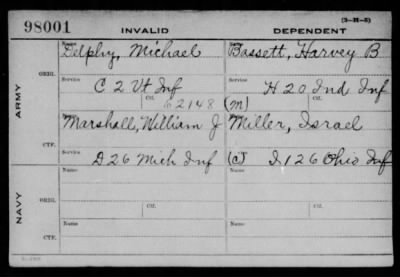 98001 INVALID DEPENDENT (3-H-5)
Name Delphy, Michael Name Bassett, Harvey B
ARMY
ORIG. Service C 2 Vt Inf Service H 20 Ind Inf
Ctf. 62148 (m) Ctf.
Marshall, William J Miller, Israel
CTF. Service D 26 Mich Inf (C) Service I 126 Ohio Inf
NAVY
Name Name
ORIG.
Ctf. Ctf.
Name Name
CTF.